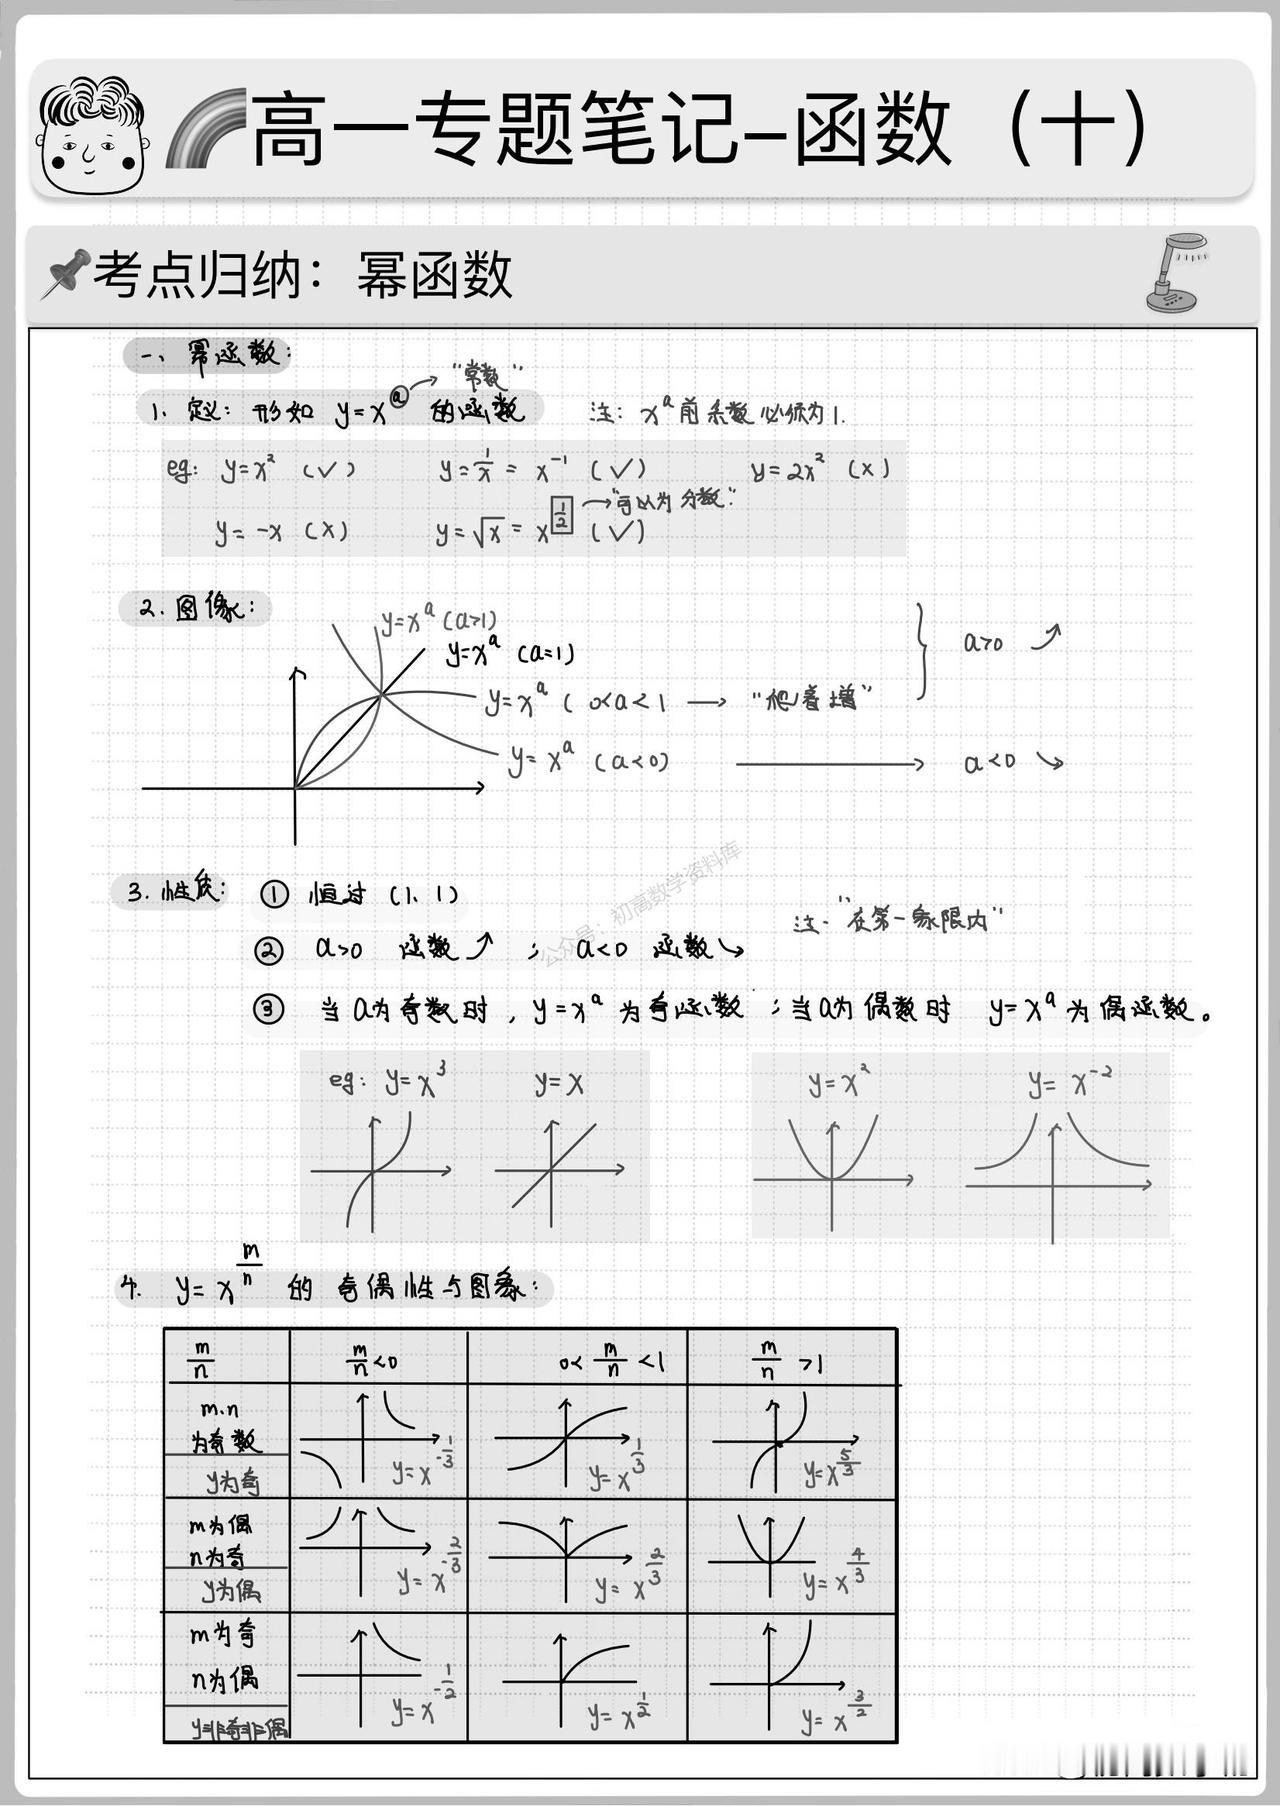 高一专题笔记-函数（十）
考点归纳：幂函数
一、幂函数：
"常数"
1. 定义：形如 y=x^a 的函数 注：x^a前系数必须为1.
eg: y=x² (✓) y=1/x = x^-1 (✓) y=2x² (×)
"可以为分数"
y=-x (×) y=√x = x^1/2 (✓)
2. 图像：
y=x^a (a>1)
y=x^a (a=1)
a>0 ↗
y=x^a ( 0<a<1 → "爬着增"
y=x^a (a<0) → a<0 ↘
3. 性质： ① 恒过 (1, 1)
注："在第一象限内"
② a>0 函数↗ ; a<0 函数↘
③ 当a为奇数时, y=x^a 为奇函数 ; 当a为偶数时 y=x^a 为偶函数。
eg: y=x³ y=x y=x² y=x^-2
4. y=x^m/n 的奇偶性与图象：
m/n m/n<0 0<m/n<1 m/n>1
m.n
为奇数
y为奇 y=x^-1/3 y=x^1/3 y=x^5/3
m为偶
n为奇
y为偶 y=x^-2/3 y=x^2/3 y=x^4/3
m为奇
n为偶
y=非奇非偶 y=x^-1/2 y=x^1/2 y=x^3/2
公众号：初高数学资料库